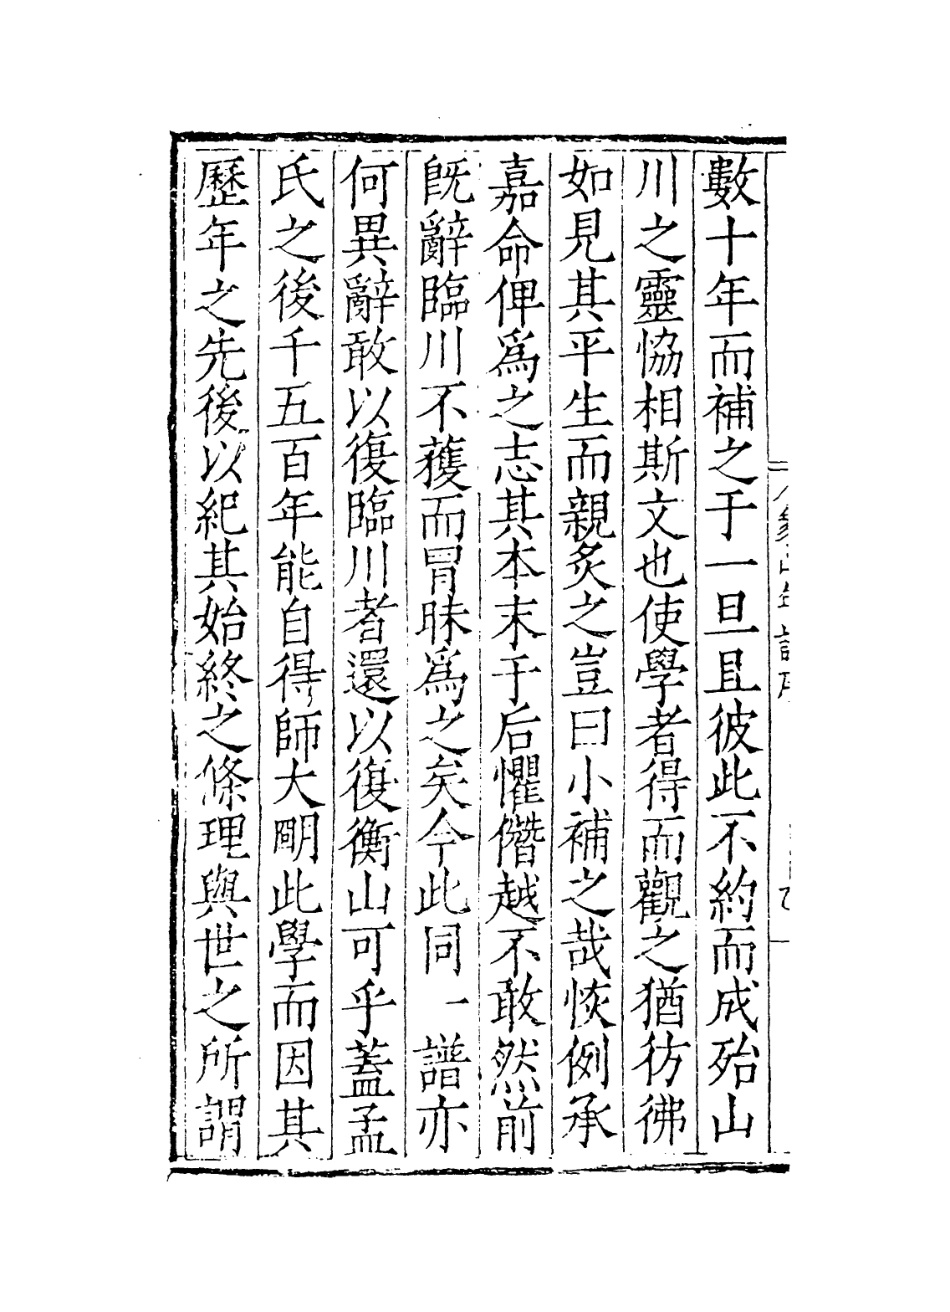 數十年而補之于一旦且彼此不約而成殆山
川之靈恊相斯文也使學者得而觀之猶彷彿
如見其平生而親炙之豈曰小補之哉恢例承
嘉命俾爲之志其本末于后懼僭越不敢然前
旣辭臨川不獲而冐昧爲之矣今此同一譜亦
何異辭敢以復臨川者還以復衡山可乎蓋孟
氏之後千五百年能自得師大朙此學而因其
歷年之先後以紀其始終之條理與世之所謂